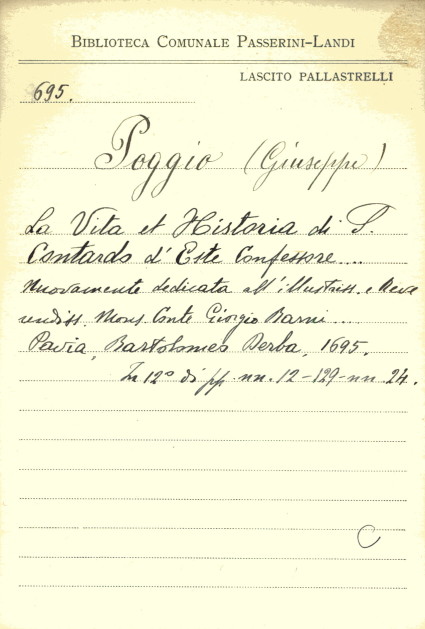 BIBLIOTECA COMUNALE PASSERINI-LANDI
LASCITO PALLASTRELLI
695.
Poggio (Giuseppe)
La Vita et Historia di S.
Contardo d'Este Confessore....
Nuovamente dedicata all'illustriss. e Reve
rendiss. Mons. Conte Giorgio Barni...
Pavia, Bartolomeo Derba, 1695.
In 12º di pp. nn. 12-129-nn 24.
C